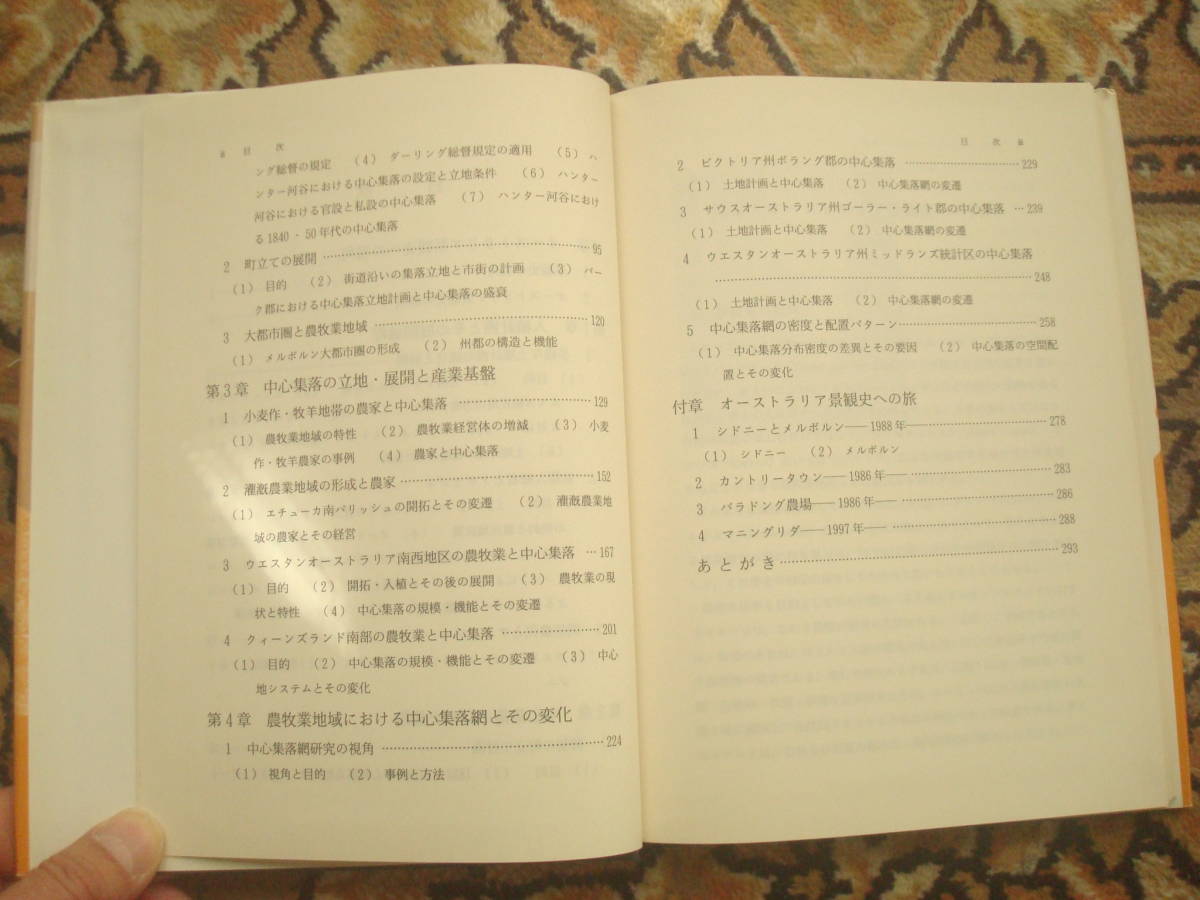 目 次
ング総督の規定 (4) ダーリング総督規定の適用 (5) ハ
ンター河谷における中心集落の設定と立地条件 (6) ハンター
河谷における官設と私設の中心集落 (7) ハンター河谷におけ
る1840・50年代の中心集落
2 町立ての展開 …… 95
(1) 目的 (2) 街道沿いの集落立地と市街の計画 (3) バー
ク郡における中心集落立地計画と中心集落の盛衰
3 大都市圏と農牧業地域 …… 120
(1) メルボルン大都市圏の形成 (2) 州都の構造と機能
第3章 中心集落の立地・展開と産業基盤
1 小麦作・牧羊地帯の農家と中心集落 …… 129
(1) 農牧業地域の特性 (2) 農牧業経営体の増減 (3) 小麦
作・牧羊農家の事例 (4) 農家と中心集落
2 灌漑農業地域の形成と農家 …… 152
(1) エチューカ南パリッシュの開拓とその変遷 (2) 灌漑農業地
域の農家とその経営
3 ウエスタンオーストラリア南西地区の農牧業と中心集落 …167
(1) 目的 (2) 開拓・入植とその後の展開 (3) 農牧業の現
状と特性 (4) 中心集落の規模・機能とその変遷
4 クィーンズランド南部の農牧業と中心集落 …… 201
(1) 目的 (2) 中心集落の規模・機能とその変遷 (3) 中心
地システムとその変化
第4章 農牧業地域における中心集落網とその変化
1 中心集落網研究の視角 …… 224
(1) 視角と目的 (2) 事例と方法
目 次
2 ビクトリア州ボラング郡の中心集落 …… 229
(1) 土地計画と中心集落 (2) 中心集落網の変遷
3 サウスオーストラリア州ゴーラー・ライト郡の中心集落 …239
(1) 土地計画と中心集落 (2) 中心集落網の変遷
4 ウエスタンオーストラリア州ミッドランズ統計区の中心集落
…… 248
(1) 土地計画と中心集落 (2) 中心集落網の変遷
5 中心集落網の密度と配置パターン …… 258
(1) 中心集落分布密度の差異とその要因 (2) 中心集落の空間配
置とその変化
付章 オーストラリア景観史への旅
1 シドニーとメルボルン——1988年—— …… 278
(1) シドニー (2) メルボルン
2 カントリータウン——1986年—— …… 283
3 バラドング農場——1986年—— …… 286
4 マニングリダ——1997年—— …… 288
あとがき …… 293